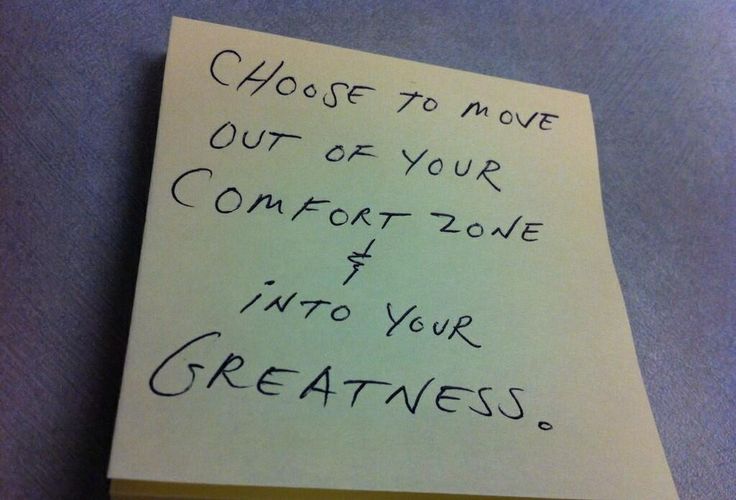 CHOOSE TO MOVE
OUT OF YOUR
COMFORT ZONE
&
iNTO YOUR
GREATNESS.